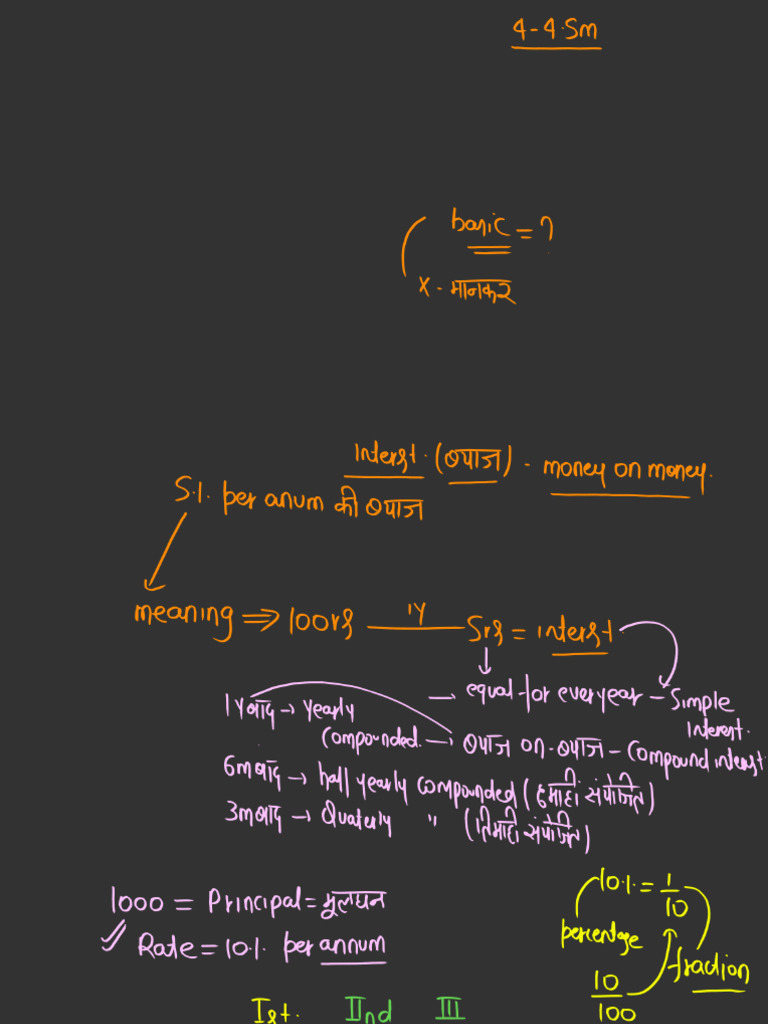 4-4.5m
basic = ?
x - मानकर
Interst. (ब्याज) - money on money.
5%. per anum की ब्याज
meaning ⇒ 100rs 1Y 5rs = interst.
→ equal for every year - Simple Interest.
1Y बाद → yearly compounded. → ब्याज on-ब्याज - Compound interest
6m बाद → half yearly compounded (छमाही संयोजित)
3m बाद → Quaterly " (तिमाही संयोजित)
10% = 1/10
1000 = Principal = मूलधन
percentage
✓ Rate = 10% per annum
fraction
10/100
Ist. IInd III